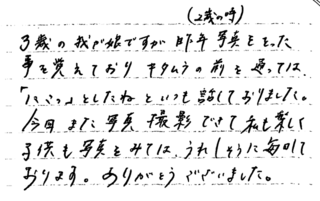 (2歳の時)
3歳の我が娘ですが昨年写真をとった
事を覚えており キタムラの前を通っては、
「にこっ」としたね といつも話しておりました。
今回また写真撮影できて私も楽しく
子供も写真をみては、うれしそうに毎日して
おります。ありがとうございました。